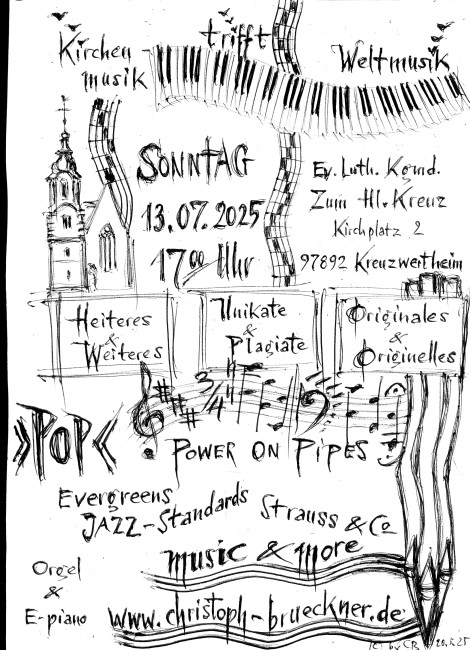 Kirchen
musik
trifft
Weltmusik
SONNTAG
13.07.2025
17⁰⁰ Uhr
Ev. Luth. Kgmd.
Zum Hl. Kreuz
Kirchplatz 2
97892 Kreuzwertheim
Heiteres
&
Weiteres
Unikate
&
Plagiate
Originales
&
Originelles
3/4
»POP«
POWER ON PIPES
Evergreens
JAZZ-Standards
Strauss & Co
music & more
Orgel
&
E-piano
www.christoph-brueckner.de
(C) by CB